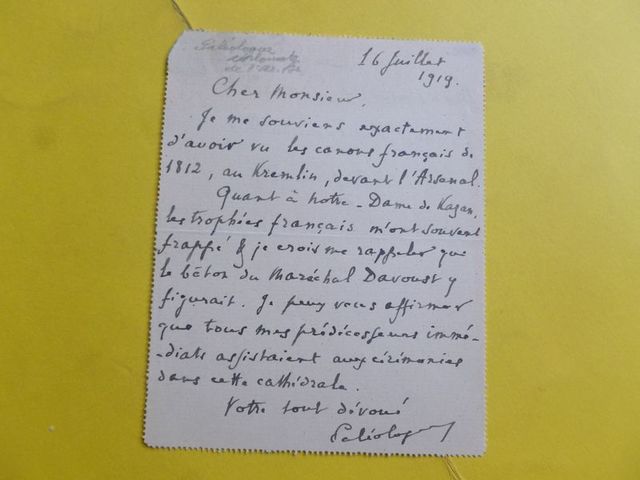 Paléologue
diplomate
de l'Ac. Fr.
16 Juillet
1919.
Cher Monsieur,
Je me souviens exactement
d'avoir vu les canons français de
1812, au Kremlin, devant l'Arsenal.
Quant à Notre-Dame de Kazan,
les trophées français m'ont souvent
frappé & je crois me rappeler que
le bâton du Maréchal Davoust y
figurait. Je peux vous affirmer
que tous mes prédécesseurs immé-
-diats assistaient aux cérémonies
dans cette cathédrale.
Votre tout dévoué
Paléologue